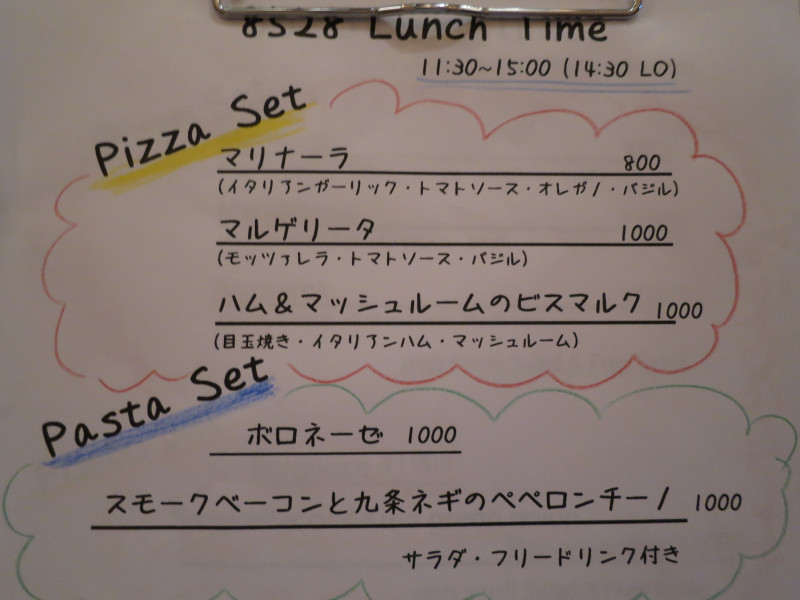 8528 Lunch Time
11:30~15:00 (14:30 LO)
Pizza Set
マリナーラ 800
(イタリアンガーリック・トマトソース・オレガノ・バジル)
マルゲリータ 1000
(モッツァレラ・トマトソース・バジル)
ハム&マッシュルームのビスマルク 1000
(目玉焼き・イタリアンハム・マッシュルーム)
Pasta Set
ボロネーゼ 1000
スモークベーコンと九条ネギのペペロンチーノ 1000
サラダ・フリードリンク付き